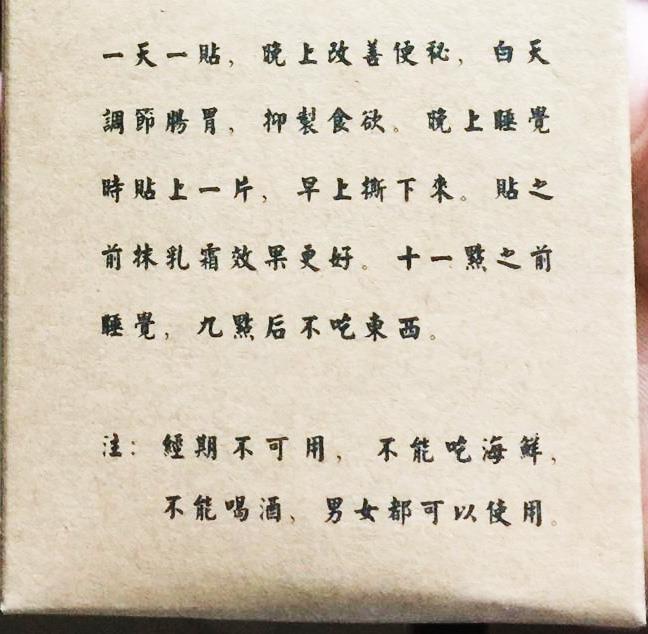 一天一貼，晚上改善便秘，白天
調節腸胃，抑製食欲。晚上睡覺
時貼上一片，早上撕下來。貼之
前抹乳霜效果更好。十一點之前
睡覺，九點后不吃東西。
注：經期不可用，不能吃海鮮，
不能喝酒、男女都可以使用。